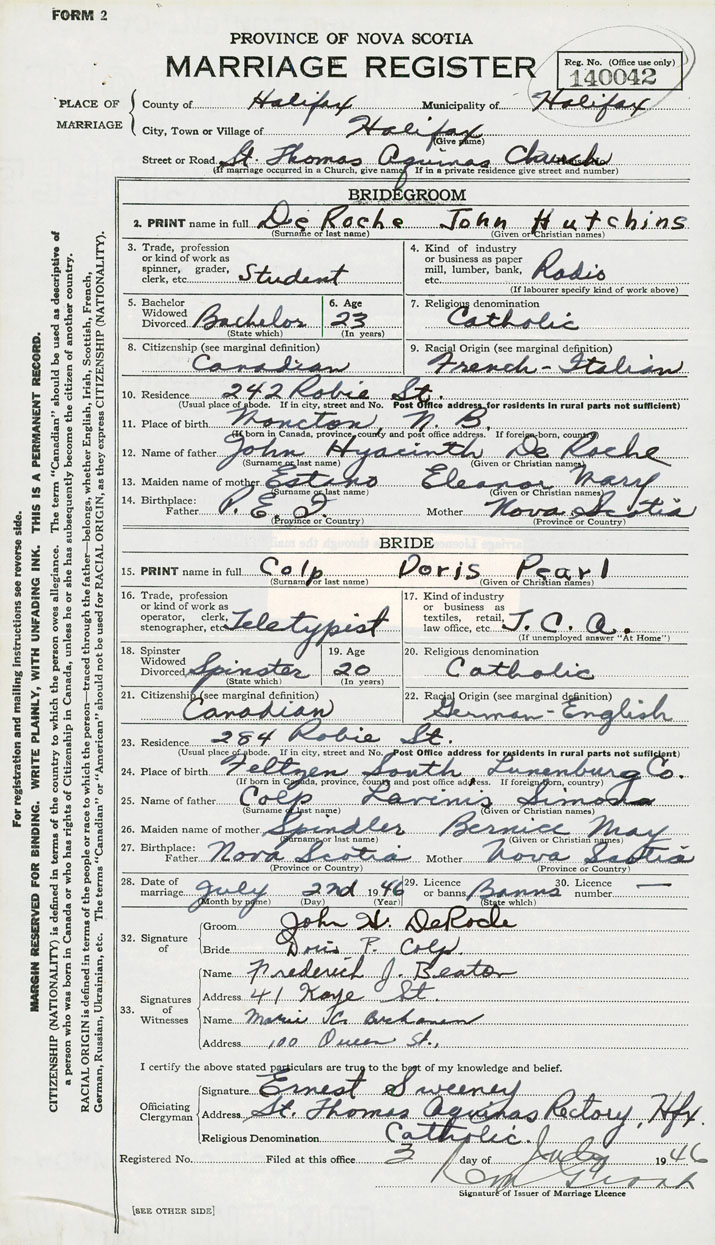 FORM 2
PROVINCE OF NOVA SCOTIA
MARRIAGE REGISTER
Reg. No. (Office use only)
140042
PLACE OF MARRIAGE
County of Halifax Municipality of Halifax
City, Town or Village of Halifax
(Give name)
Street or Road St. Thomas Aquinas Church
(If marriage occurred in a Church, give name. If in a private residence give street and number)
BRIDEGROOM
2. PRINT name in full De Roche John Hutchins
(Surname or last name) (Given or Christian names)
3. Trade, profession or kind of work as spinner, grader, clerk, etc. Student
4. Kind of industry or business as paper mill, lumber, bank, etc. Radio
(If labourer specify kind of work above)
5. Bachelor Widowed Divorced Bachelor
(State which)
6. Age 23
(In years)
7. Religious denomination Catholic
8. Citizenship (see marginal definition) Canadian
9. Racial Origin (see marginal definition) French-Italian
10. Residence 242 Robie St.
(Usual place of abode. If in city, street and No. Post Office address for residents in rural parts not sufficient)
11. Place of birth Moncton, N. B.
(If born in Canada, province, county and post office address. If foreign-born, country)
12. Name of father John Hyacinth De Roche
(Surname or last name) (Given or Christian names)
13. Maiden name of mother Estano Eleanor Mary
(Surname or last name) (Given or Christian names)
14. Birthplace: Father P. E. I. Mother Nova Scotia
(Province or Country) (Province or Country)
BRIDE
15. PRINT name in full Colp Doris Pearl
(Surname or last name) (Given or Christian names)
16. Trade, profession or kind of work as operator, clerk, stenographer, etc. Teletypist
17. Kind of industry or business as textiles, retail, law office, etc. T. C. A.
(If unemployed answer "At Home")
18. Spinster Widowed Divorced Spinster
(State which)
19. Age 20
(In years)
20. Religious denomination Catholic
21. Citizenship (see marginal definition) Canadian
22. Racial Origin (see marginal definition) German-English
23. Residence 284 Robie St.
(Usual place of abode. If in city, street and No. Post Office address for residents in rural parts not sufficient)
24. Place of birth Feltzen South Lunenburg Co.
(If born in Canada, province, county and post office address. If foreign born, country)
25. Name of father Colp Lavinis Simons
(Surname or last name) (Given or Christian names)
26. Maiden name of mother Spindler Bernice May
(Surname or last name) (Given or Christian names)
27. Birthplace: Father Nova Scotia Mother Nova Scotia
(Province or Country) (Province or Country)
28. Date of marriage July 2nd 1946
(Month by name) (Day) (Year)
29. Licence or banns Banns
(State which)
30. Licence number —
32. Signature of
Groom John H. DeRoche
Bride Doris P. Colp
33. Signatures of Witnesses
Name Frederick J. Beaton
Address 41 Kaye St.
Name Marie Buchanan
Address 100 Queen St.,
I certify the above stated particulars are true to the best of my knowledge and belief.
Officiating Clergyman
Signature Ernest Sweeney
Address St. Thomas Aquinas Rectory, Hfx.
Religious Denomination Catholic.
Registered No. Filed at this office 3 day of July 1946
Signature of Issuer of Marriage Licence
[SEE OTHER SIDE]
For registration and mailing instructions see reverse side.
MARGIN RESERVED FOR BINDING. WRITE PLAINLY, WITH UNFADING INK. THIS IS A PERMANENT RECORD.
CITIZENSHIP (NATIONALITY) is defined in terms of the country to which the person owes allegiance. The term "Canadian" should be used as descriptive of
a person who was born in Canada or who has rights of Citizenship in Canada, unless he or she has subsequently become the citizen of another country.
RACIAL ORIGIN is defined in terms of the people or race to which the person—traced through the father—belongs, whether English, Irish, Scottish, French,
German, Russian, Ukrainian, etc. The terms "Canadian" or "American" should not be used for RACIAL ORIGIN, as they express CITIZENSHIP (NATIONALITY).